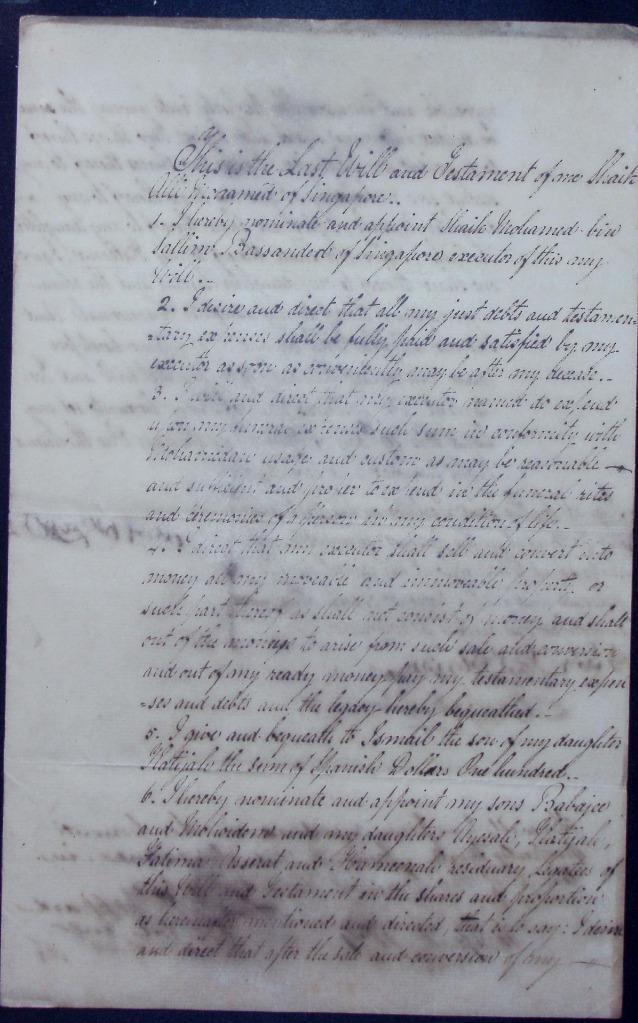 This is the Last Will and Testament of me Shaik
Allie Mohamed of Singapore..
1. I hereby nominate and appoint Shaik Mohamed bin
Sallim Bassandod of Singapore executor of this my
Will.-
2. I desire and direct that all my just debts and testamen-
-tary expenses shall be fully paid and satisfied by my
executor as soon as conveniently may be after my decease..
3. I will and direct that my executor named do expend
upon my funeral expenses such sum in conformity with
Mohamedan usage and custom as may be reasonable
and sufficient and proper to expend in the funeral rites
and ceremonies of a person in my condition of life..
4. I direct that my executor shall sell and convert into
money all my moveable and immoveable property, or
such part thereof as shall not consist of money and shall
out of the moneys to arise from such sale and conversion
and out of any ready money, pay my testamentary expen
-ses and debts and the legacy hereby bequeathed..
5. I give and bequeath to Ismail the son of my daughter
Katijah the sum of Spanish Dollars One hundred..
6. I hereby nominate and appoint my sons Babajee
and and my daughters Ayesah, Katijah,
Fatima and residuary legatees of
this Will and Testament in the shares and proportion
as hereinafter mentioned and directed, that is to say: I desire
and direct that after the sale and conversion of my